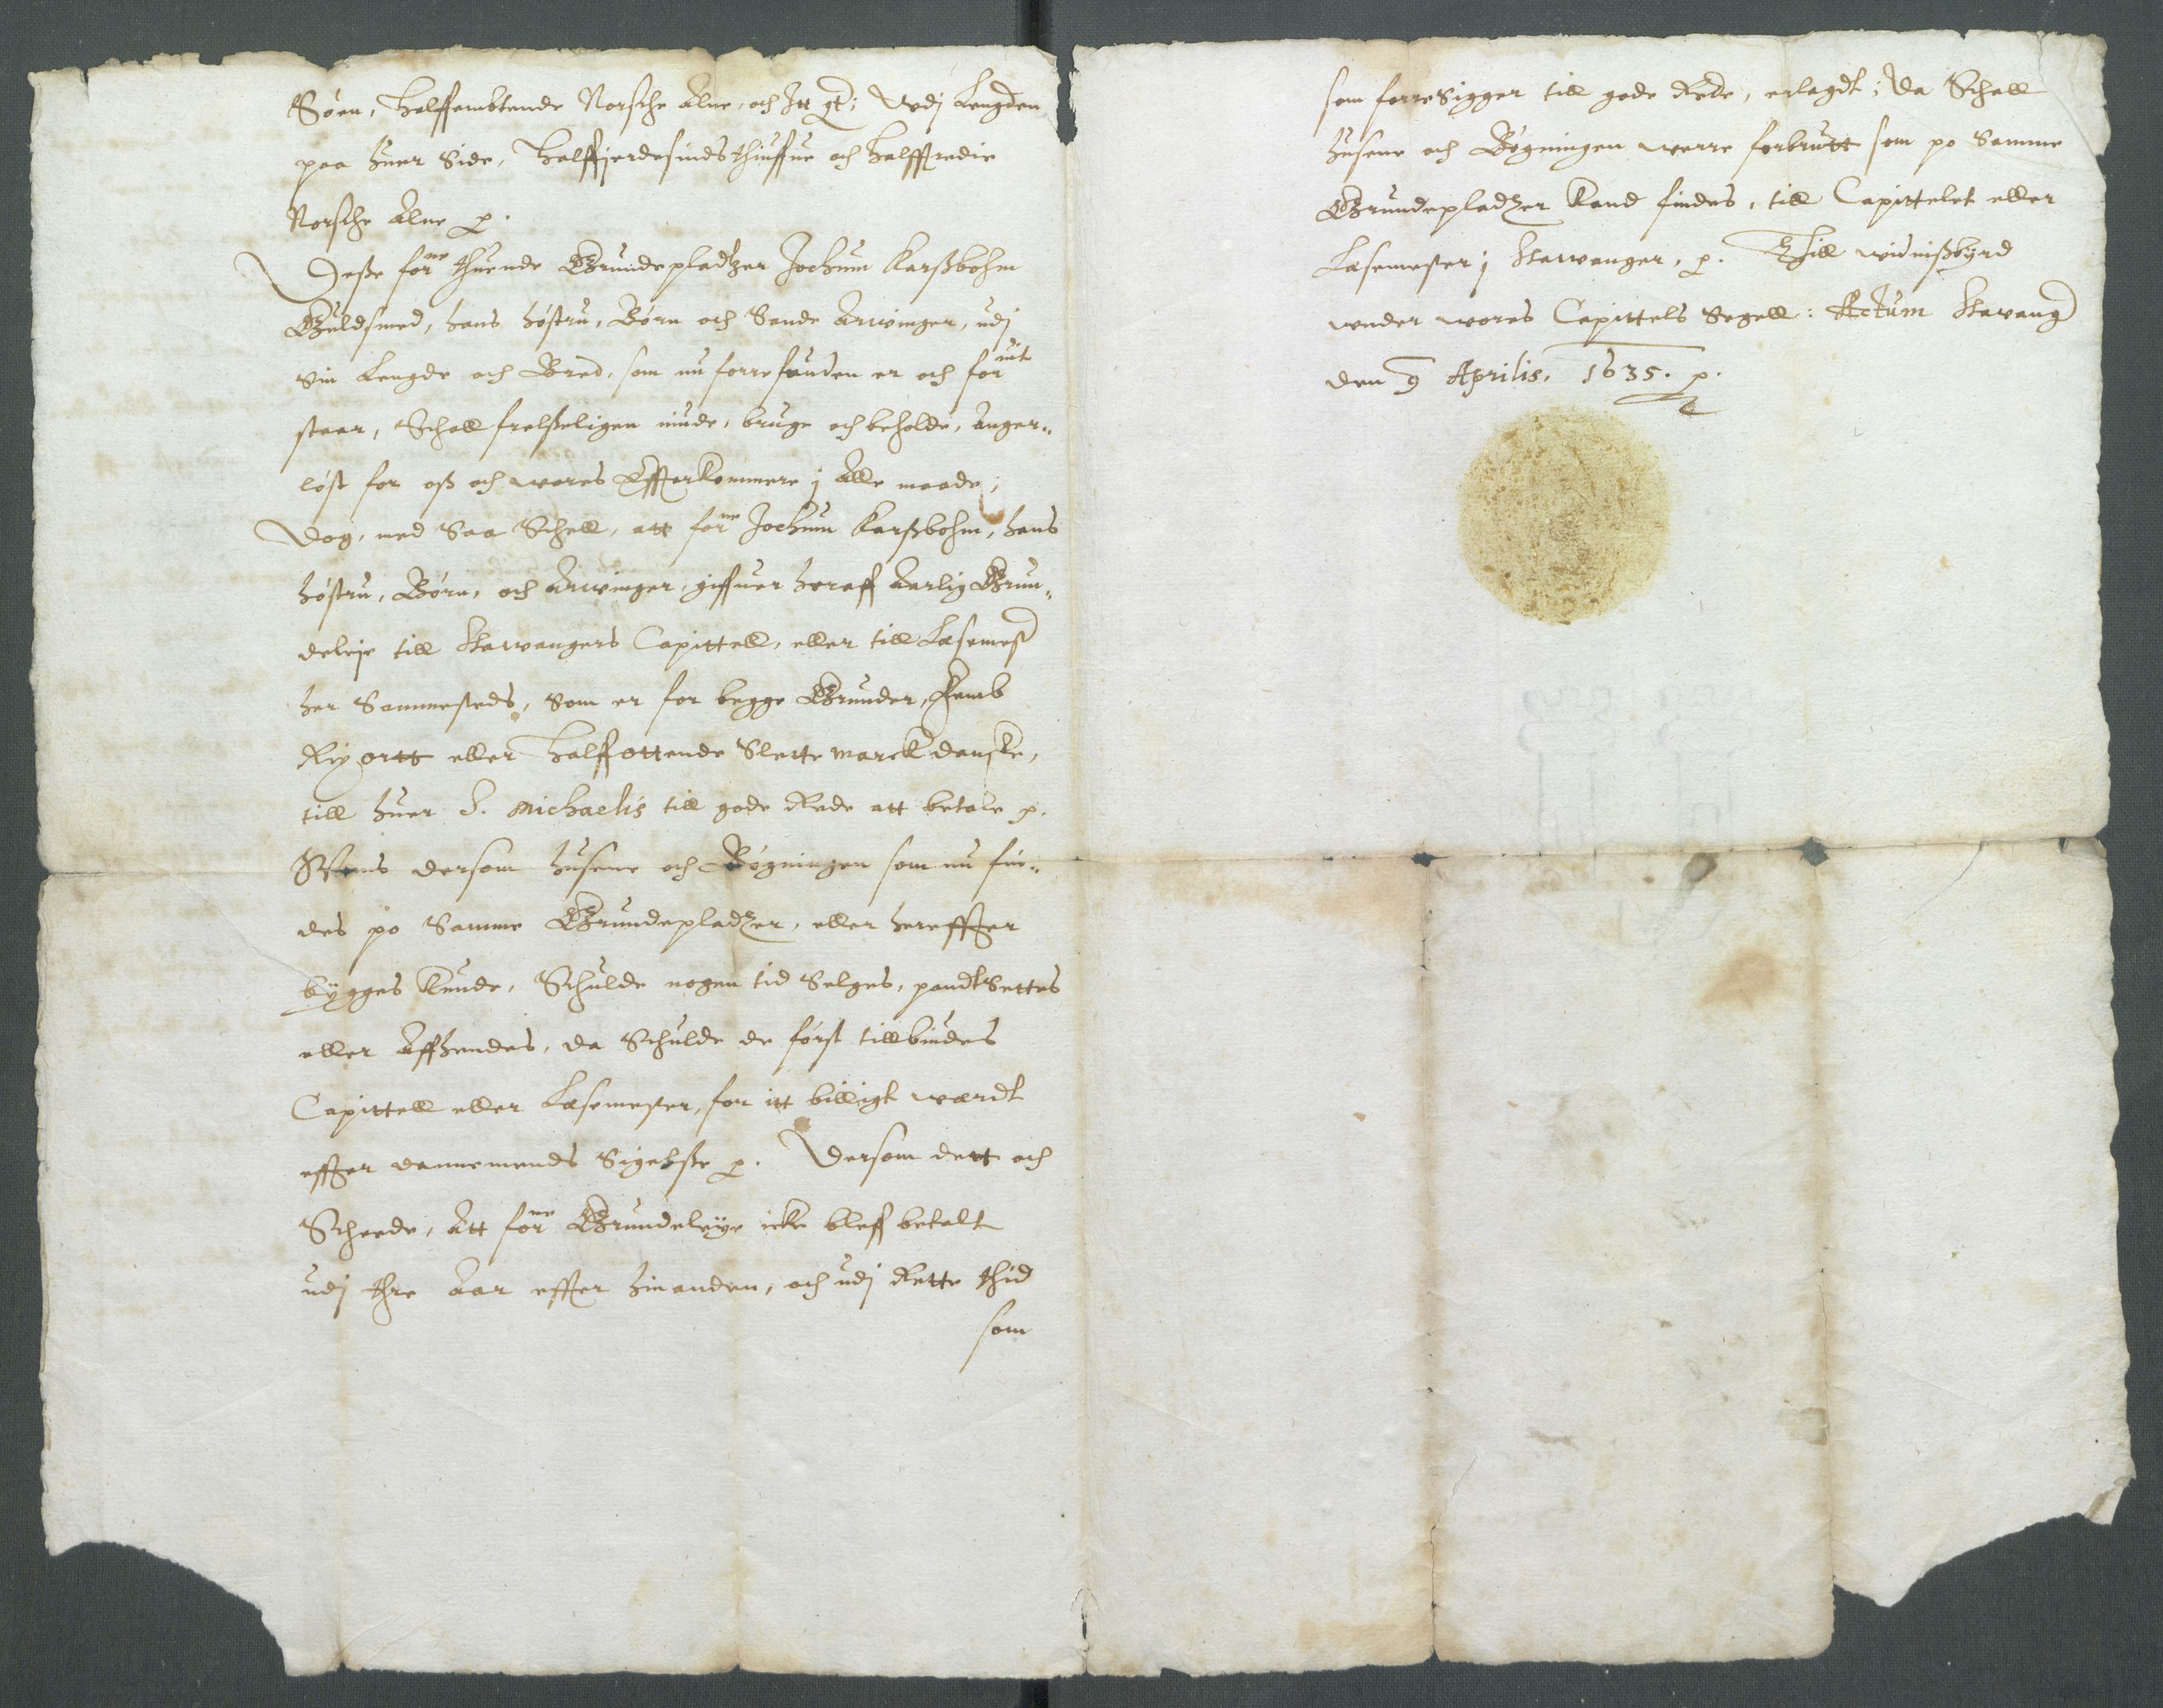 Søen, Halffembtende Norsche Alne, och Itt qt: Vdj Lengden
paa huer Side, Halffierdesindsthiuffue och halfftredie
Norsche Alne p.
Desse forne thuende Grundepladtzer Jochum Karssbohm
Guldsmed, hans høstru, Børn och Sande Arwinger, udj
Sin Lengde och Bred, som nu forrefunden er och foruit
staar, Schall frelsseligen niude, bruge och beholde, Anger-
løst for oss och wores Effterkommere j Alle maade,
Dog, med Saa Schell, att forne Jochum Karssbohm, hans
høstru, Børn, och Arwinger, giffuer heraff Aarlig Grun-
deleje till Stawangers Capittell, eller till Læsemest
her Sammesteds, som er for begge Grunder, Femb
Rix ortt eller Halffottende Slette marck danske,
till huer S. Michaelis till gode Rede att betale p.
Wens dersom husene och Bøgningen som nu fin-
des po Samme Grundepladzer, eller hereffter
bÿgges kunde, Schulde nogen tid Selges, pandtSettes
eller Affhendes, da Schulde de først tillbiudes
Capittell eller Læsemester, for itt billigt wærdt
effter dannemends Sigelsse p. Dersom dett och
Scheede, Att forne Grundeleÿe icke bleff betalt
udj thre Aar effter hinanden, och udj Rette thid
som
som forresigger till gode Rede, erlagdt; da Schall
husene och Bøgningen werre forbrutt som po Samme
Grundepladzer kand findes, till Capittelet eller
Læsemester j Stawanger, p. Thill widnissbyrd
wnder wores Capittels Segell: Actum Stawang
den 9 Aprilis, 1635. p.